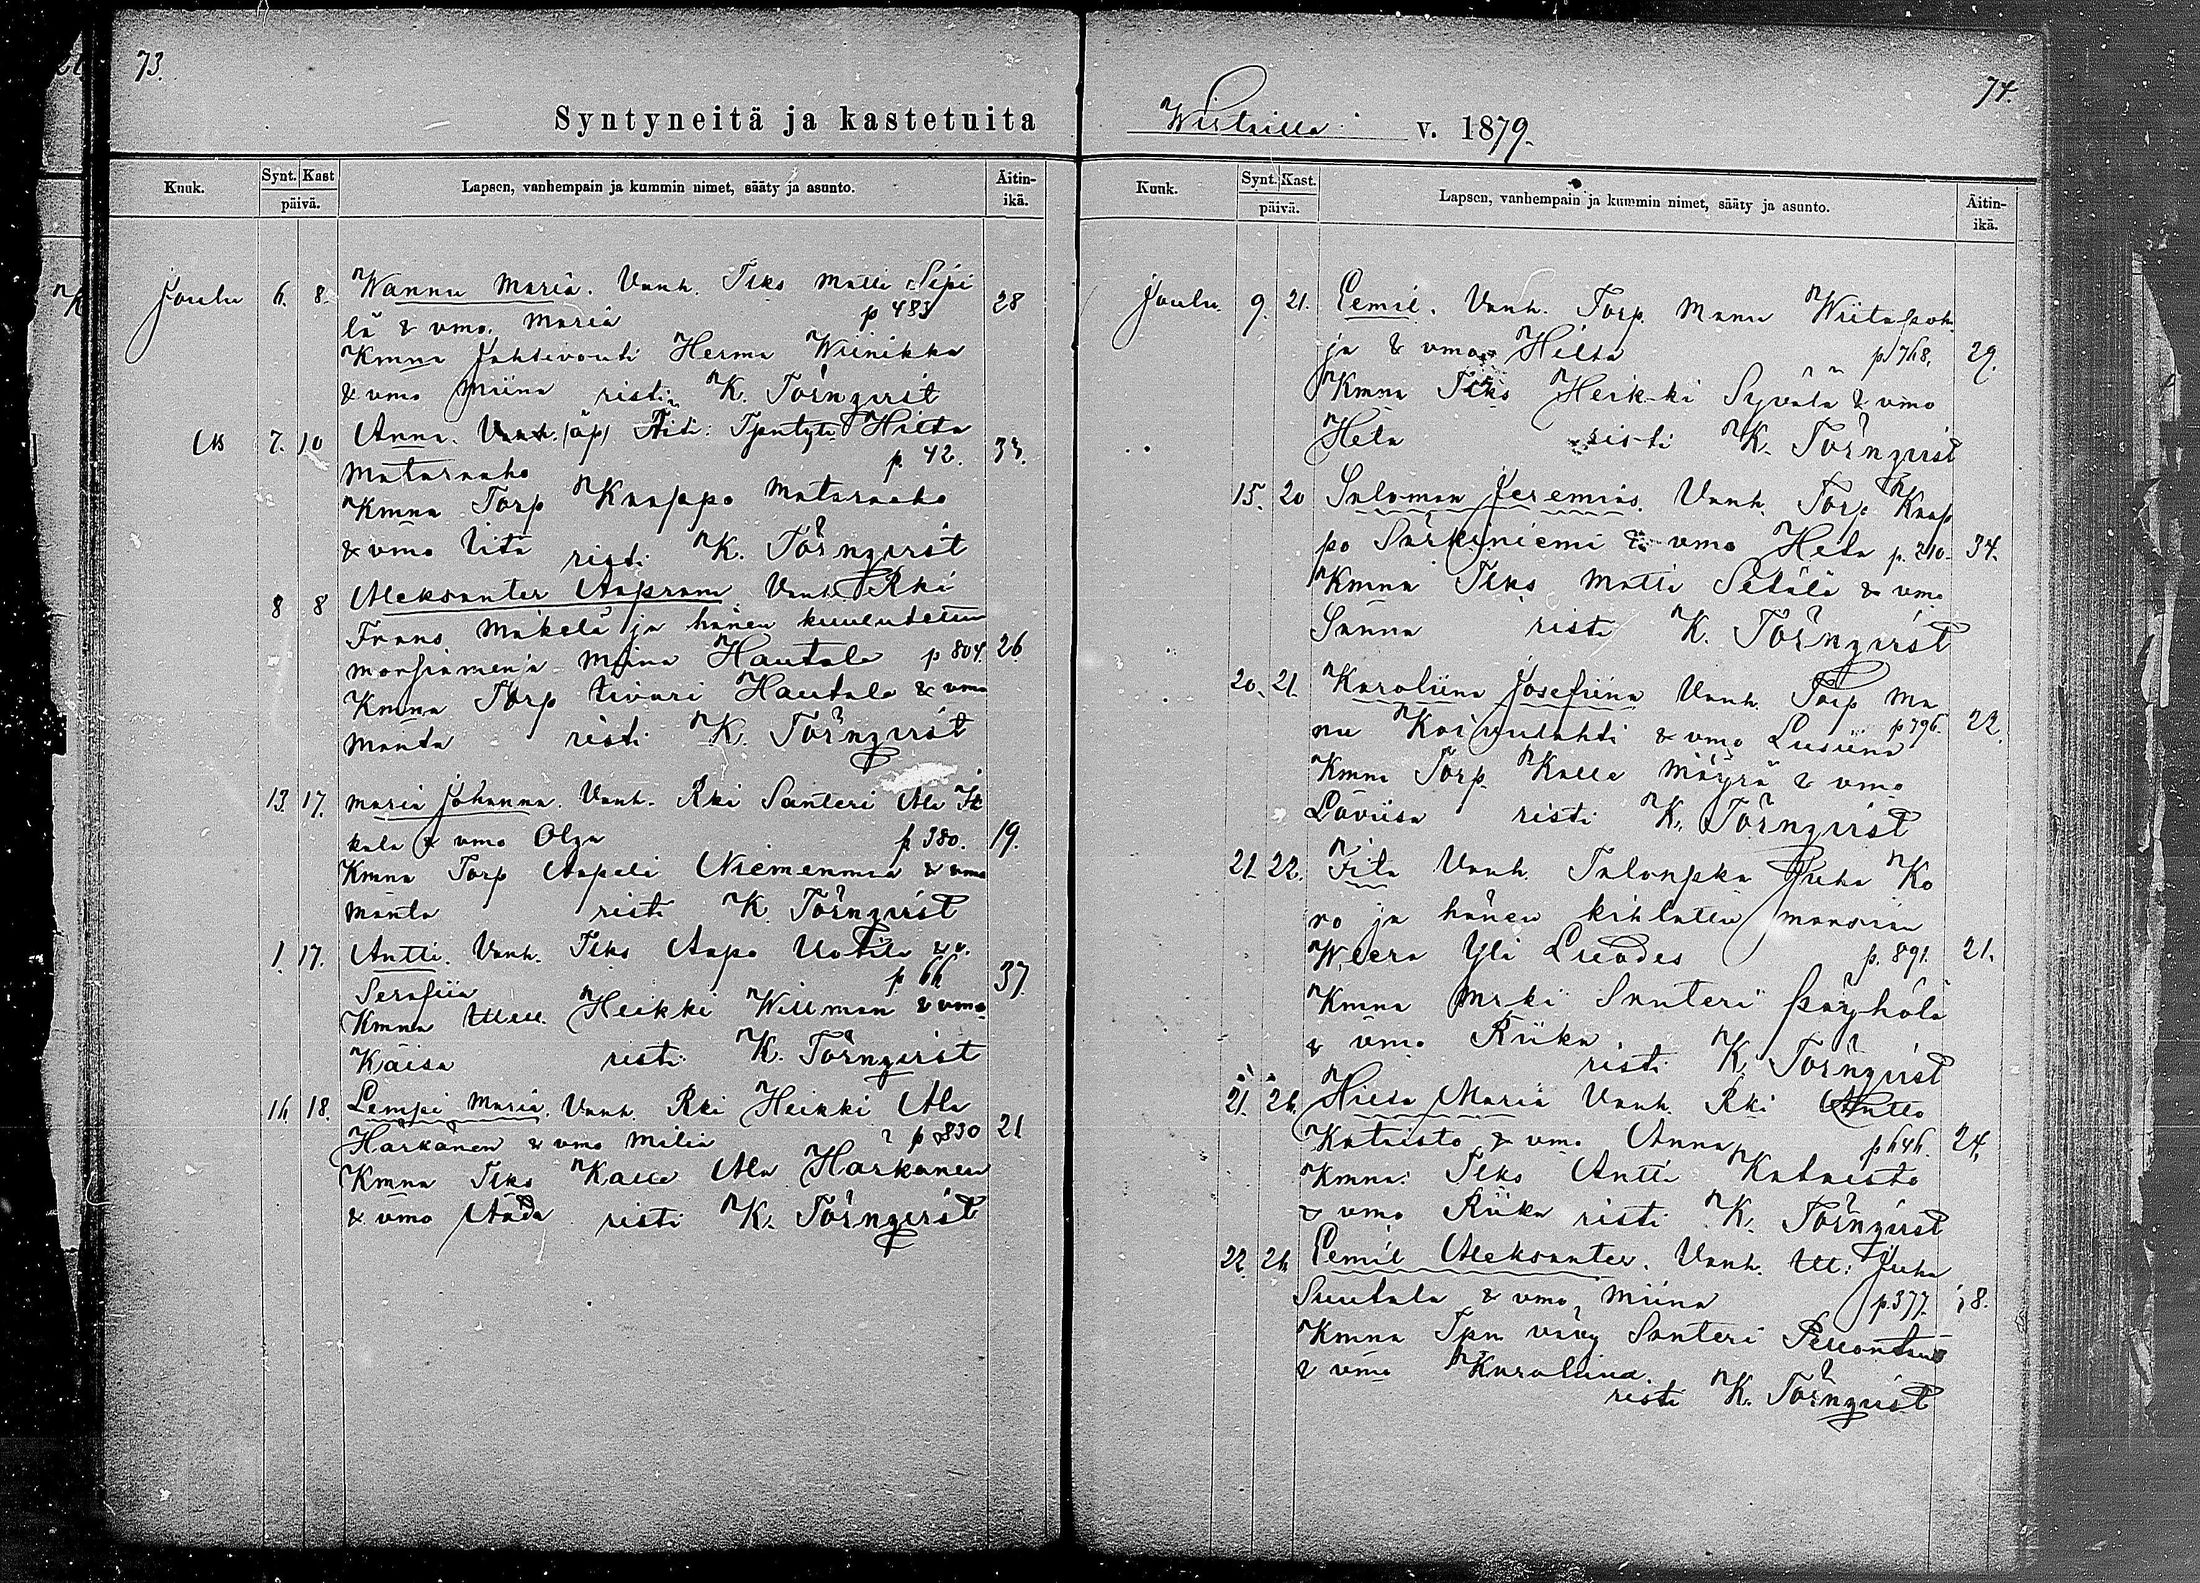 73.
Syntyneitä ja kastetuita
Kuuk. Synt. Kast päivä. Lapsen, vanhempain ja kummin nimet, sääty ja asunto. Äitin-ikä.
Joulu 6. 8. Wannu Maria. Vanh. Tlks Matti Sipi
lä & vmo. Maria p 483 28
Kmna Jahtivouti Herma Wiinikka
& vmo Miina risti K. Törnqvist
7. 10 Anna. (äp) Äiti: Hilta
Mataraaho p. 42. 33.
Kmna Torp Kaappo Mataraaho
& vmo risti K. Törnqvist
8 8 Aleksanter Aapram Vanh. Rki
Frans Mäkelä ja hänen kuulutettu
morsiamensa Miina Hautala p 804. 26
Kmna Torp Iivari Hautala & vmo
Manta risti K. Törnqvist
13. 17. Maria Johanna. Vanh. Rki Santeri Ala Ik
kala & vmo Olga p 380. 19.
Kmna Torp Aapeli Niemenmaa & vmo
Manta risti K. Törnqvist
1. 17. Antti. Vanh. Tlks Aapo Uotila & v.
Serafiia p 66 37
Kmna Heikki Willman & vmo
Kaisa risti K. Törnqvist
16. 18. Lempi Maria. Vanh. Rki Heikki Ala
Härkänen & vmo Milia p 830 21
Kmna Tlks Kalle Ala Härkänen
& vmo Aada risti K. Törnqvist
74.
v. 1879.
Kuuk. Synt. Kast. päivä. Lapsen, vanhempain ja kummin nimet, sääty ja asunto. Äitin-ikä.
Joulu. 9. 21. Eemil. Vanh. Torp. Manu Wiitapoh
ja & vmo Hilta p 768. 29.
Kmna Tlks Heikki Syvälä & vmo
Heta risti K. Törnqvist
15. 20 Salomon Jeremias. Vanh. Torp. Kaap
po Särkiniemi & vmo Heta p. 210. 34.
Kmna Tlks Matti Setälä & vmo
Sanna risti K. Törnqvist
20. 21. Karoliina Josefiina Vanh. Torp Ma
nu Koivulahti & vmo Lusiina p 796. 22.
Kmna Torp. Kalle Mäyrä & vmo
Loviisa risti K. Törnqvist
21. 22. Fila Vanh Talonpka Juha Ko
ro ja hänen kihlattu morsian
Weera Yli Luodes p. 891. 21.
Kmna Mrki Santeri Päyhölä
& vmo Riika risti K. Törnqvist
21. 26. Hilta Maria Vanh. Rki Antto
Kataisto & vmo Anna p 646. 24.
Kmna: Tlks Antti Kataisto
& vmo Riika risti K. Törnqvist
22. 26 Eemil Aleksanter. Vanh. Itl: Juha
Suutala & vmo Miina p. 377. 18.
Kmna Tpn vävy Santeri
& vmo Karoliina
risti K. Törnqvist